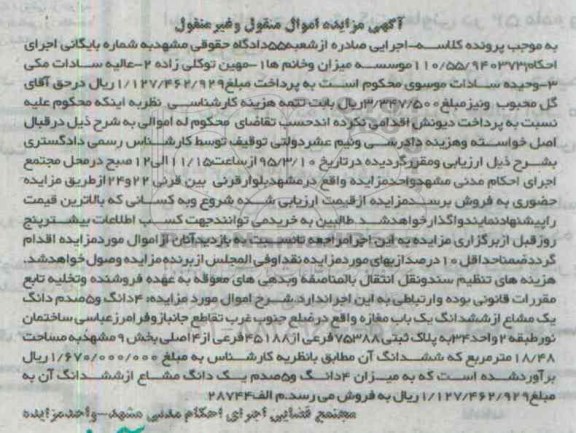 آگهی مزایده اموال منقول و غیر منقول
به موجب پرونده کلاسه-اجرایی صادره از شعبه ۵۵دادگاه حقوقی مشهدبه شماره بایگانی اجرای
احکام۱۱۰/۵۵/۹۴۰۳۷۳موسسه میزان وخانم ها۱-مهین توکلی زاده ۲-عالیه سادات مکی
۳-وحیده سادات موسوی محکوم است به پرداخت مبلغ۱/۱۲۷/۴۶۲/۹۲۹ ریال درحق آقای
گل محبوب ونیزمبلغ۳/۳۴۷/۵۰۰ریال بابت تتمه هزینه کارشناسی نظربه اینکه محکوم علیه
نسبت به پرداخت دیونش اقدامی نکرده اندحسب تقاضای محکوم له اموالی به شرح ذیل درقبال
اصل خواسته وهزینه دادرسی ونیم عشردولتی توقیف،توسط کارشناس رسمی دادگستری
بشرح ذیل ارزیابی ومقررگردیده درتاریخ ۹۵/۳/۱۰ ازساعت۱۱/۱۵الی۱۲صبح درمحل مجتمع
اجرای احکام مدنی مشهدواحدمزایده واقع درمشهدبلوارقرنی بین قرنی ۲۲و۲۴ازطریق مزایده
حضوری به فروش برسدمزایده ازقیمت ارزیابی شده شروع وبه کسانی که بالاترین قیمت
راپیشنهادنمایندواگذارخواهدشد طالبین به خریدمی توانندجهت کسب اطلاعات بیشترپنج
روزقبل ازبرگزاری مزایده به این اجرامراجعه تانسبت به بازدیدآنان ازاموال موردمزایده اقدام
گرددضمناحداقل ۱۰درصدازبهای موردمزایده نقدا وفی المجلس ازبرنده مزایده وصول خواهدشد.
هزینه های تنظیم سندونقل انتقال بالمناصفه وبدهی های معوقه به عهده فروشنده وتخلیه تابع
مقررات قانونی بوده وارتباطی به این اجراندارد.شرح اموال مورد مزایده: ۴دانگ و۵صدم دانگ
یک مشاع ازششدانگ یک باب مغازه واقع درضلع جنوب غرب تقاطع جانبازوفرامرزعباسی ساختمان
نورطبقه۲واحد۳۴به پلاک ثبتی ۷۵۳۸۸فرعی از۴۵۱۸۸فرعی از۴اصلی بخش ۹مشهدبه مساحت
۱۸/۴۸مترمربع که ششدانگ آن مطابق بانظریه کارشناس به مبلغ ۱/۶۷۰/۰۰۰/۰۰۰ریال
برآوردشده است که به میزان ۴دانگ و۵صدم یک دانگ مشاع ازششدانگ آن به
مبلغ۱/۱۲۷/۴۶۲/۹۲۹ریال به فروش می رسد.م الف۲۸۷۴۴
مجتمع قضایی اجرای احکام مدنی مشهد-واحدمزایده